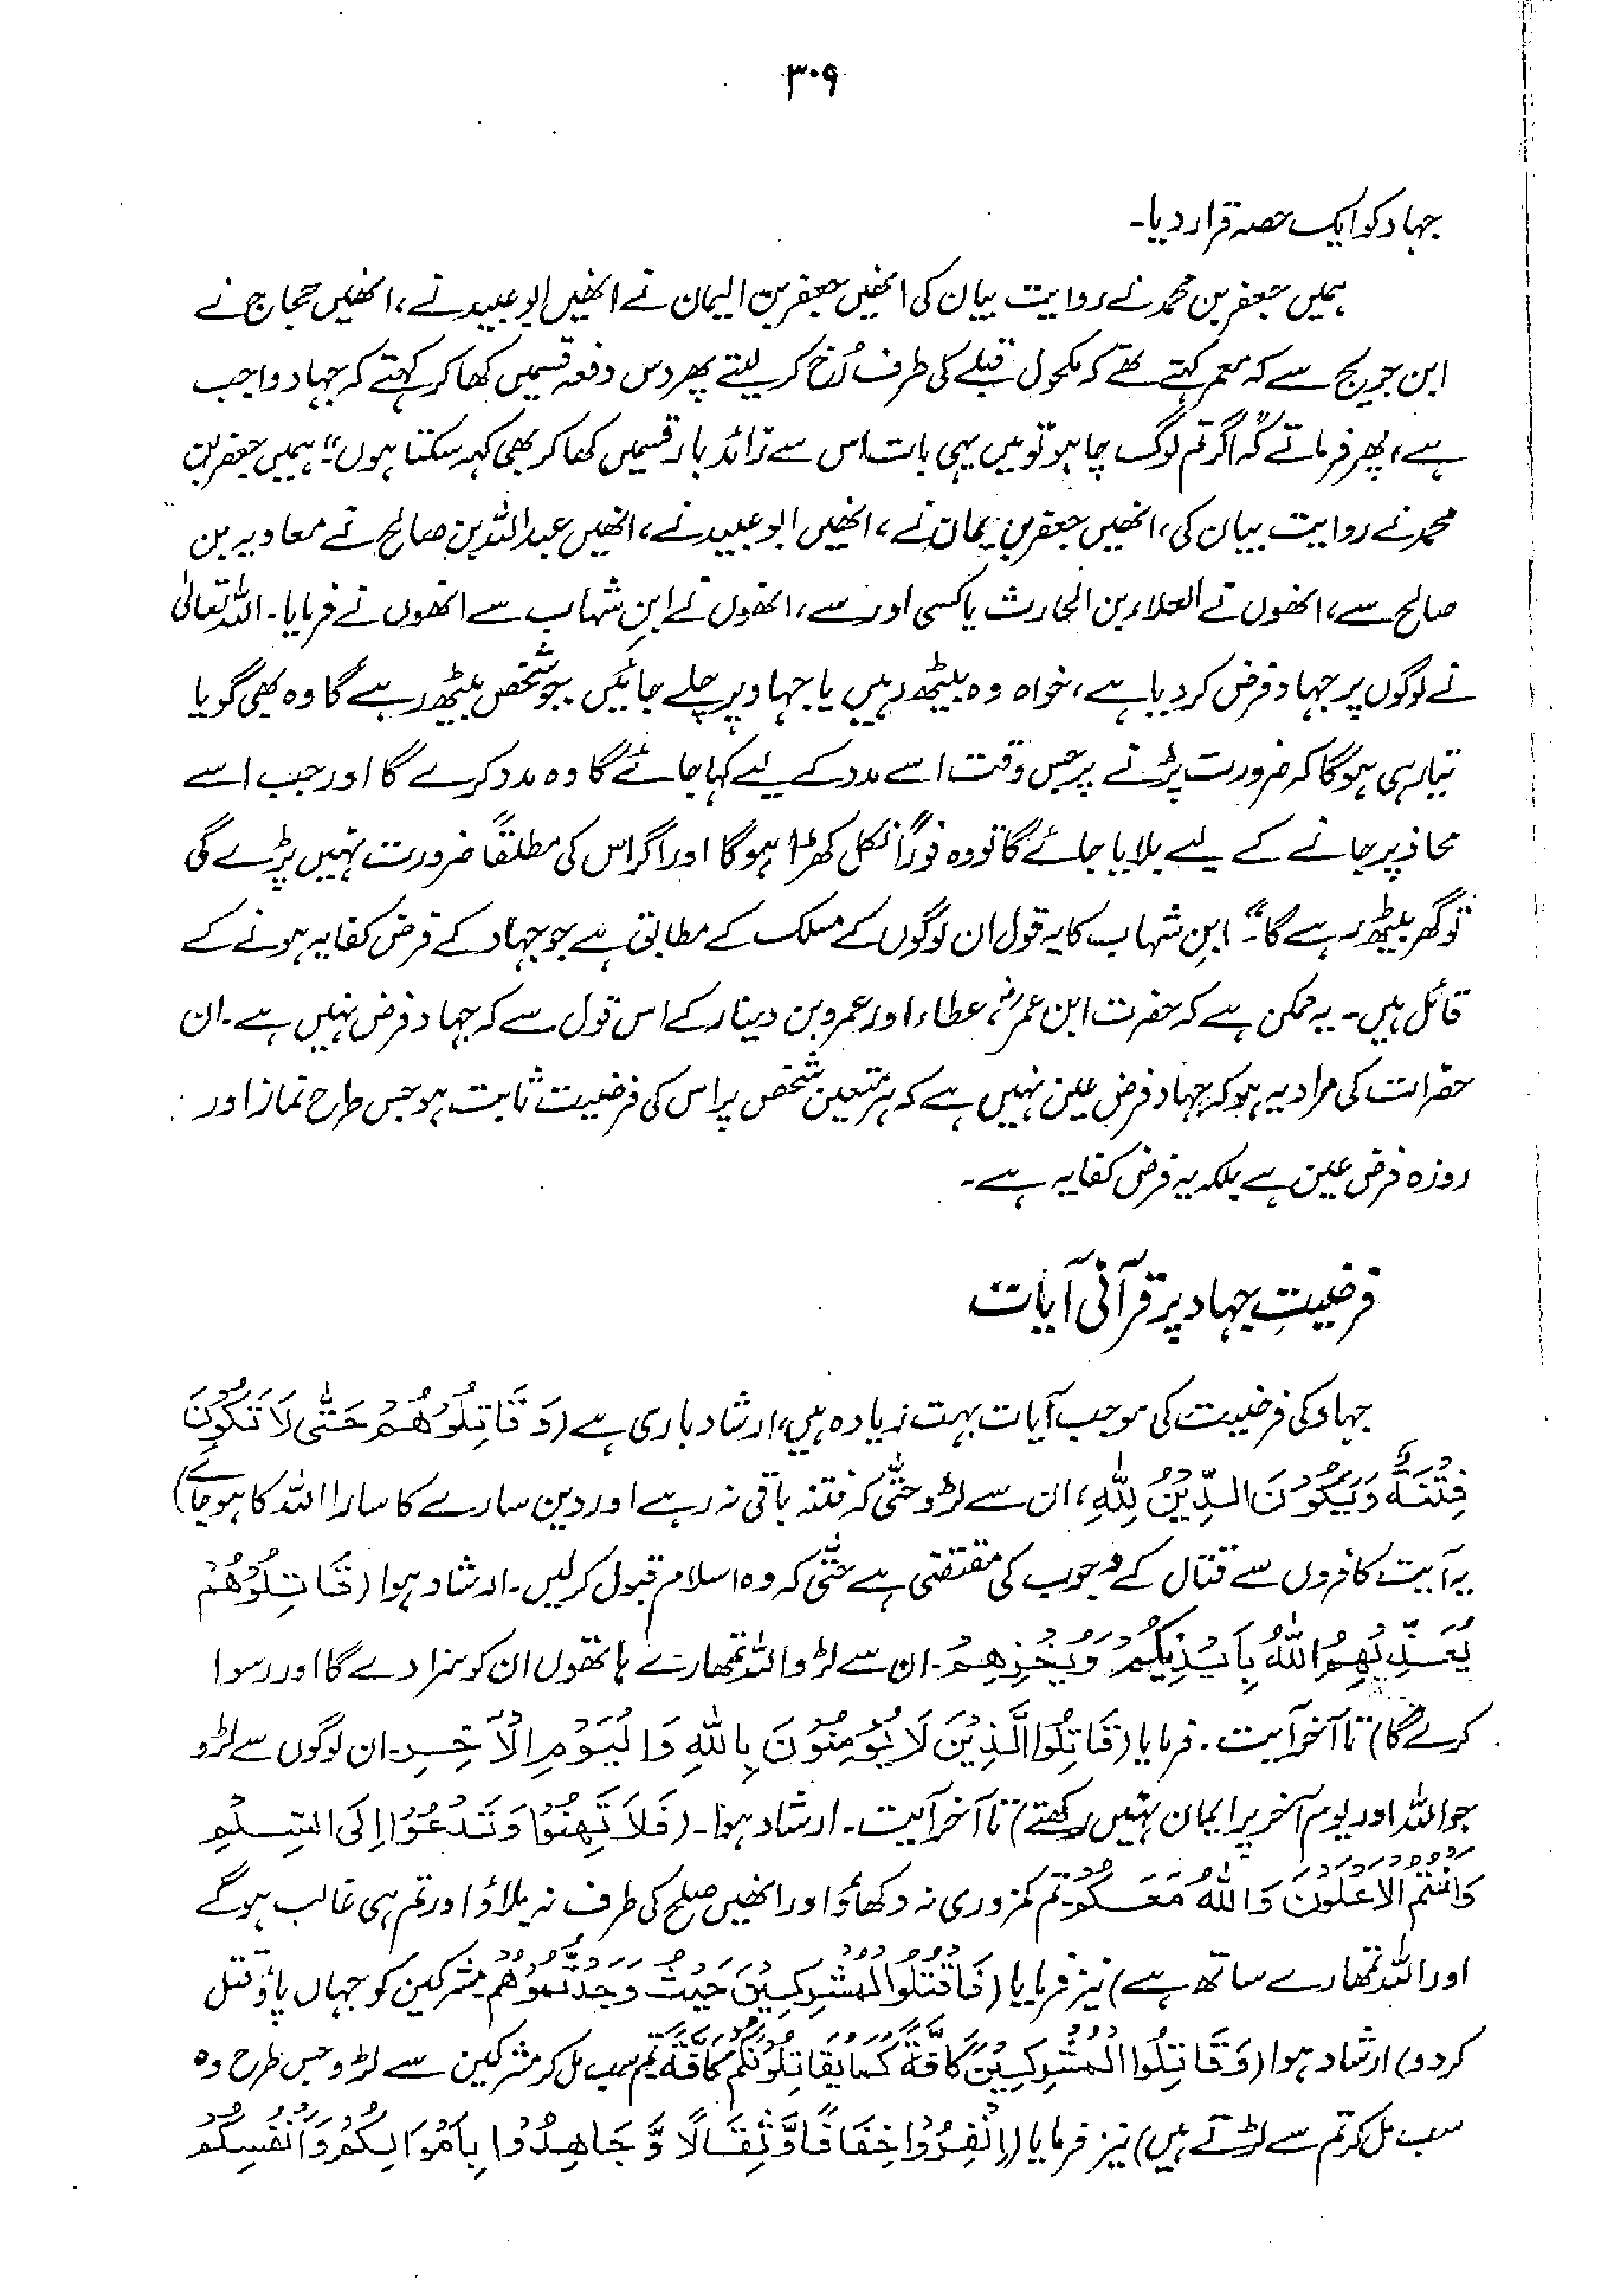 ۳۰۹
جہاد کو ایک حصہ قرار دیا۔
ہمیں جعفر بن محمد نے روایت بیان کی انھیں جعفر بن الیمان نے انھیں ابو عبید نے، انھیں حجاج نے
ابن جریج سے کہ معمر کہتے تھے کہ مکحول قبلے کی طرف رُخ کر لیتے پھر دس دفعہ قسمیں کھا کر کہتے کہ جہاد واجب
ہے، پھر فرماتے کہ "اگر تم لوگ چاہو تو میں یہی بات اس سے زائد بار قسمیں کھا کر بھی کہہ سکتا ہوں"۔ ہمیں جعفر بن
محمد نے روایت بیان کی، انھیں جعفر بن یمان نے، انھیں ابو عبید نے، انھیں عبداللہ بن صالح نے معاویہ بن
صالح سے، انھوں نے العلاء بن الحارث یا کسی اور سے، انھوں نے ابنِ شہاب سے انھوں نے فرمایا۔ اللہ تعالیٰ
نے لوگوں پر جہاد فرض کر دیا ہے، خواہ وہ بیٹھ رہیں یا جہاد پر چلے جائیں۔ جو شخص بیٹھ رہے گا وہ بھی گویا
تیار ہی ہوگا کہ ضرورت پڑنے پر جس وقت اسے مدد کے لیے کہا جائے گا وہ مدد کرے گا اور جب اسے
محاذ پر جانے کے لیے بلایا جائے گا تو وہ فوراً نکل کھڑا ہوگا اور اگر اس کی مطلقاً ضرورت نہیں پڑے گی
تو گھر بیٹھ رہے گا"۔ ابنِ شہاب کا یہ قول ان لوگوں کے مسلک کے مطابق ہے جو جہاد کے فرض کفایہ ہونے کے
قائل ہیں۔ یہ ممکن ہے کہ حضرت ابن عمرؓ، عطاء اور عمرو بن دینار کے اس قول سے کہ جہاد فرض نہیں ہے۔ ان
حضرات کی مراد یہ ہو کہ جہاد فرض عین نہیں ہے کہ ہر متعین شخص پر اس کی فرضیت ثابت ہو جس طرح نماز اور
روزہ فرض عین ہے بلکہ یہ فرض کفایہ ہے۔
فرضیتِ جہاد پر قرآنی آیات
جہاد کی فرضیت کی موجب آیات بہت زیادہ ہیں، ارشاد باری ہے (وَ قَاتِلُوْهُمْ حَتّٰى لَا تَكُوْنَ
فِتْنَةٌ وَّيَكُوْنَ الدِّيْنُ لِلّٰهِ، ان سے لڑو حتّٰی کہ فتنہ باقی نہ رہے اور دین سارے کا سارا اللہ کا ہو جائے)
یہ آیت کافروں سے قتال کے وجوب کی مقتضی ہے حتّٰی کہ وہ اسلام قبول کر لیں۔ ارشاد ہوا (قَاتِلُوْهُمْ
يُعَذِّبْهُمُ اللّٰهُ بِاَيْدِيْكُمْ وَيُخْزِهِمْ۔ ان سے لڑو اللہ تمھارے ہاتھوں ان کو سزا دے گا اور رسوا
کرے گا) تا آخر آیت۔ فرمایا (قَاتِلُوا الَّذِيْنَ لَا يُؤْمِنُوْنَ بِاللّٰهِ وَالْيَوْمِ الْاٰخِرِ۔ ان لوگوں سے لڑو
جو اللہ اور یوم آخر پر ایمان نہیں رکھتے) تا آخر آیت۔ ارشاد ہوا۔ (فَلَا تَهِنُوْا وَتَدْعُوْا اِلَى السَّلْمِ
وَاَنْتُمُ الْاَعْلَوْنَ وَاللّٰهُ مَعَكُمْ۔ تم کمزوری نہ دکھاؤ اور انھیں صلح کی طرف نہ بلاؤ اور تم ہی غالب ہوگے
اور اللہ تمھارے ساتھ ہے) نیز فرمایا (فَاقْتُلُوا الْمُشْرِكِيْنَ حَيْثُ وَجَدْتُّمُوْهُمْ مشرکین کو جہاں پاؤ قتل
کر دو) ارشاد ہوا (وَقَاتِلُوا الْمُشْرِكِيْنَ كَافَّةً كَمَا يُقَاتِلُوْنَكُمْ كَافَّةً تم سب مل کر مشرکین سے لڑو جس طرح وہ
سب مل کر تم سے لڑتے ہیں) نیز فرمایا (اِنْفِرُوْا خِفَافًا وَّثِقَالًا وَّ جَاهِدُوْا بِاَمْوَالِكُمْ وَاَنْفُسِكُمْ